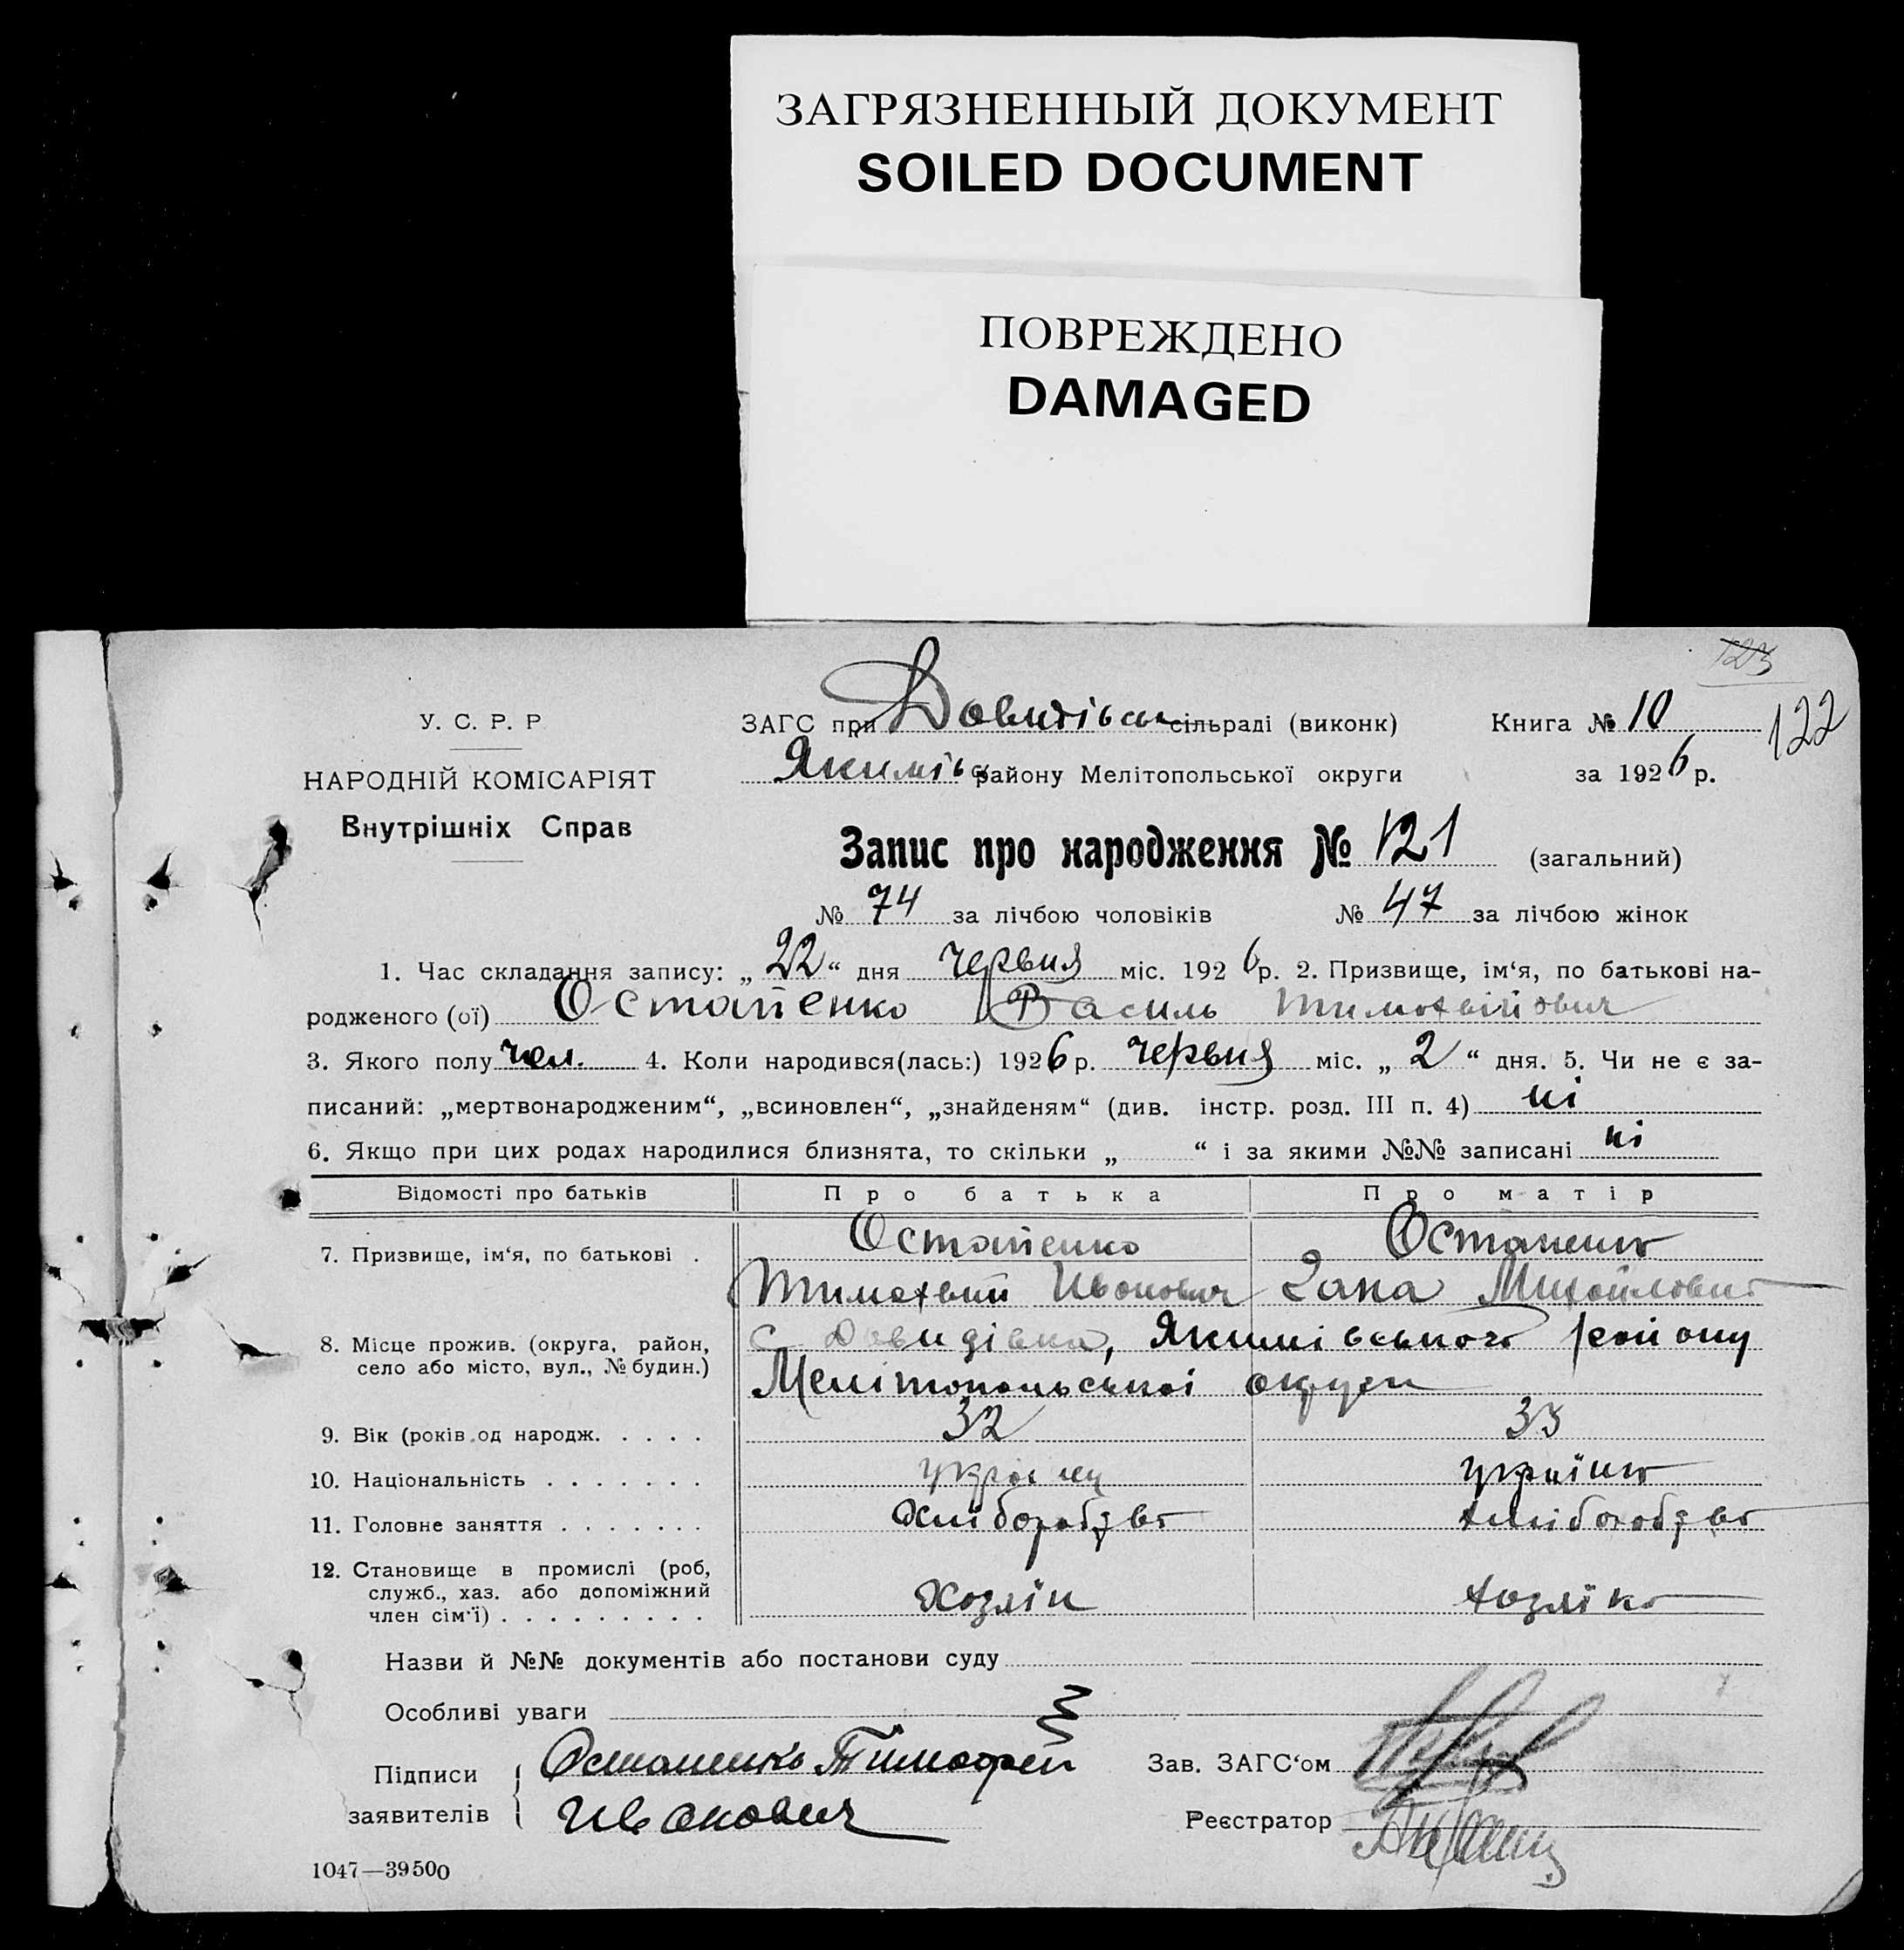 ЗАГРЯЗНЕННЫЙ ДОКУМЕНТ
SOILED DOCUMENT
ПОВРЕЖДЕНО
DAMAGED
123
У. С. Р. Р
НАРОДНІЙ КОМІСАРІЯТ
Внутрішніх Справ
ЗАГС при Давидівськ сільраді (виконк) Книга № 10
122
Якимівс району Мелітопольської округи за 1926 р.
Запис про народження № 121 (загальний)
№ 74 за лічбою чоловіків № 47 за лічбою жінок
1. Час складання запису: „22“ дня червня міс. 1926 р. 2. Призвище, ім‘я, по батькові на-
родженого (ої) Остапенко Василь Тимохвійович
3. Якого полу чол. 4. Коли народився(лась:) 1926 р. червня міс. „2“ дня. 5. Чи не є за-
писаний: „мертвонародженим“, „всиновлен“, „знайденям“ (див. інстр. розд. III п. 4) ні
6. Якщо при цих родах народилися близнята, то скільки „ “ і за якими №№ записані ні
Відомості про батьків Про батька Про матір
7. Призвище, ім‘я, по батькові . Остапенко Остапенко
Тимохвій Иванович Михайловна
8. Місце прожив. (округа, район, село або місто, вул., № будин.) с Давидівка, Якимівського району
Мелітопольської округи
9. Вік (років од народж. . . . . 32 33
10. Національність . . . . . . . україн україн
11. Головне заняття . . . . . . . Хліборобство хліборобство
12. Становище в промислі (роб, служб., хаз. або допоміжний член сім‘ї) . . . . . . . . . Хозяін хозяїка
Назви й №№ документів або постанови суду
Особливі уваги
Підписи заявителів { Остапенко Тимофей
Иванович
Зав. ЗАГС‘ом
Реєстратор
1047—39500